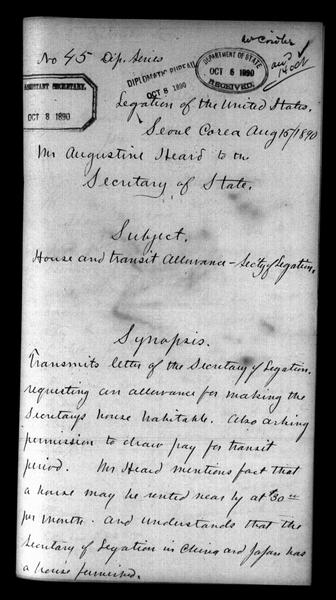 No 45 Dip. Series
DIPLOMATIC BUREAU
OCT 8 1890
DEPARTMENT OF STATE
OCT 6 1890
RECEIVED.
ASSISTANT SECRETARY,
OCT 8 1890
Legation of the United States.
Seoul Corea Aug 15/1890
Mr Augustine Heard to the
Secretary of State.
Subject.
House and transit allowance - Secty of Legation.
Synopsis.
Transmits letter of the Secretary of Legation.
requesting an allowance for making the
Secretarys house habitable. Also asking
permission to draw pay for transit
period. Mr Heard mentions fact that
a house may be rented near by at $30 00
per month. and understands that the
Secretary of Legation in China and Japan has
a house furnished.